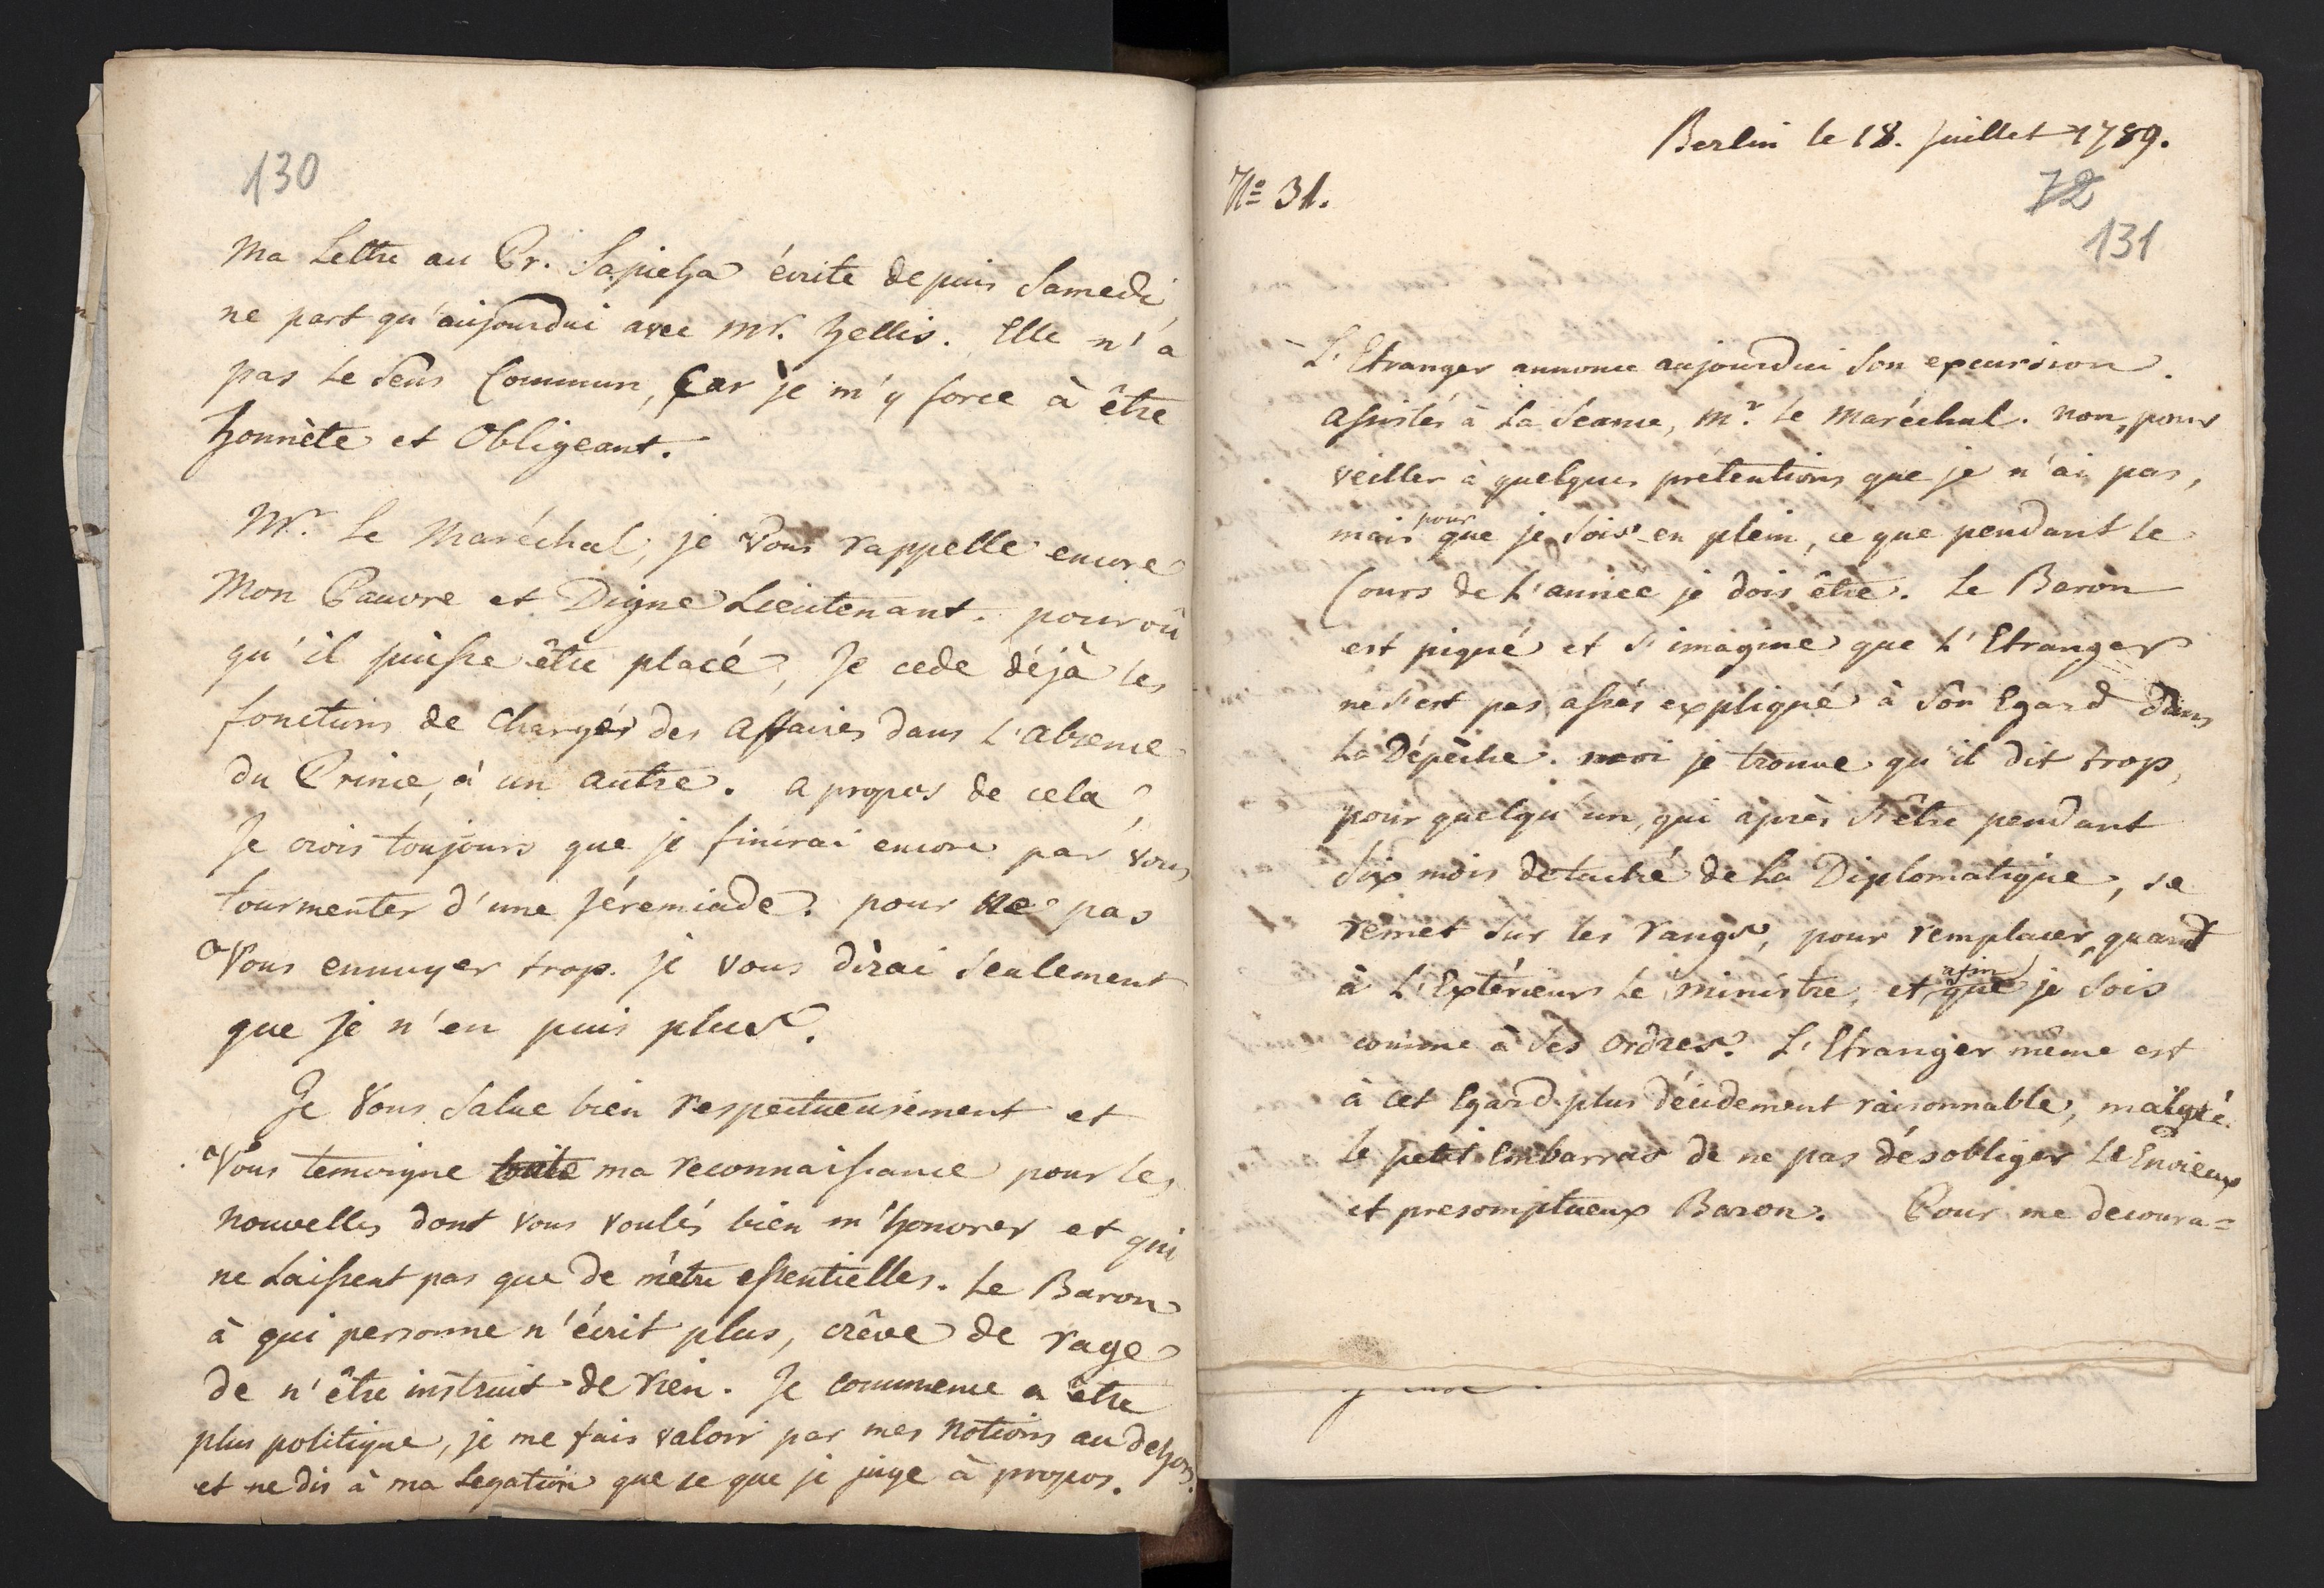 130
Ma Lettre au Pr. Sapieha écrite depuis Samedi,
ne part qu'aujourdui avec Mr. Hellis. Elle n'a
pas le Sens Commun, Car je m'y force à être
honnète et Obligeant.
Mr. Le Maréchal, je Vous rappelle encore
Mon Pauvre et Digne Lieutenant. pourvû
qu'il puisse être placé, Je cede déjà les
fonctions de Chargés des Affaires dans L'Absence
du Prince, à un autre. a propos de cela,
Je crois toujours que je finirai encore par vous
tourmenter d'une Jéremiade. pour ne pas
Vous ennuyer trop. je vous dirai Seulement
que je n'en puis plus.
Je Vous Salue bien respectueusement et
Vous temoigne toute ma reconnaissance pour les
nouvelles dont vous voulés bien m'honorer et qui
ne Laissent pas que de m'étre essentielles. Le Baron
à qui personne n'écrit plus, crêve de rage
de n'être instruit de rien. Je commence a être
plus politique, je me fais valoir par mes Notions au dehors.
et ne dis à ma Legation que ce que je juge à propos.
Berlin le 18. Juillet 1789.
No 31.
72
131
L'Etranger annonce aujourdui Son excursion.
Assistés à La Seance, Mr. Le Maréchal. non, pour
veiller à quelques prétentions que je n'ai pas,
mais pour que je Sois en plein, ce que pendant le
Cours de L'année je dois être. Le Baron
est piqué et s'imagine que L'Etranger
ne s'est pas assés expliqué à Son Egard dans
La Dépêche. moi je trouve qu'il dit trop,
pour quelqu'un, qui après s'être pendant
Six mois detaché de La Diplomatique, se
remet Sur les rangs, pour remplacer, quant
à L'Extérieur Le Ministre, et afin que je Sois
comme à Ses Ordres. L'Etranger même est
à cet Egard plus décidement raisonnable, malgré
le petit Embarras de ne pas désobliger Le Envieux
et presomptueux Baron. Pour me decoura=